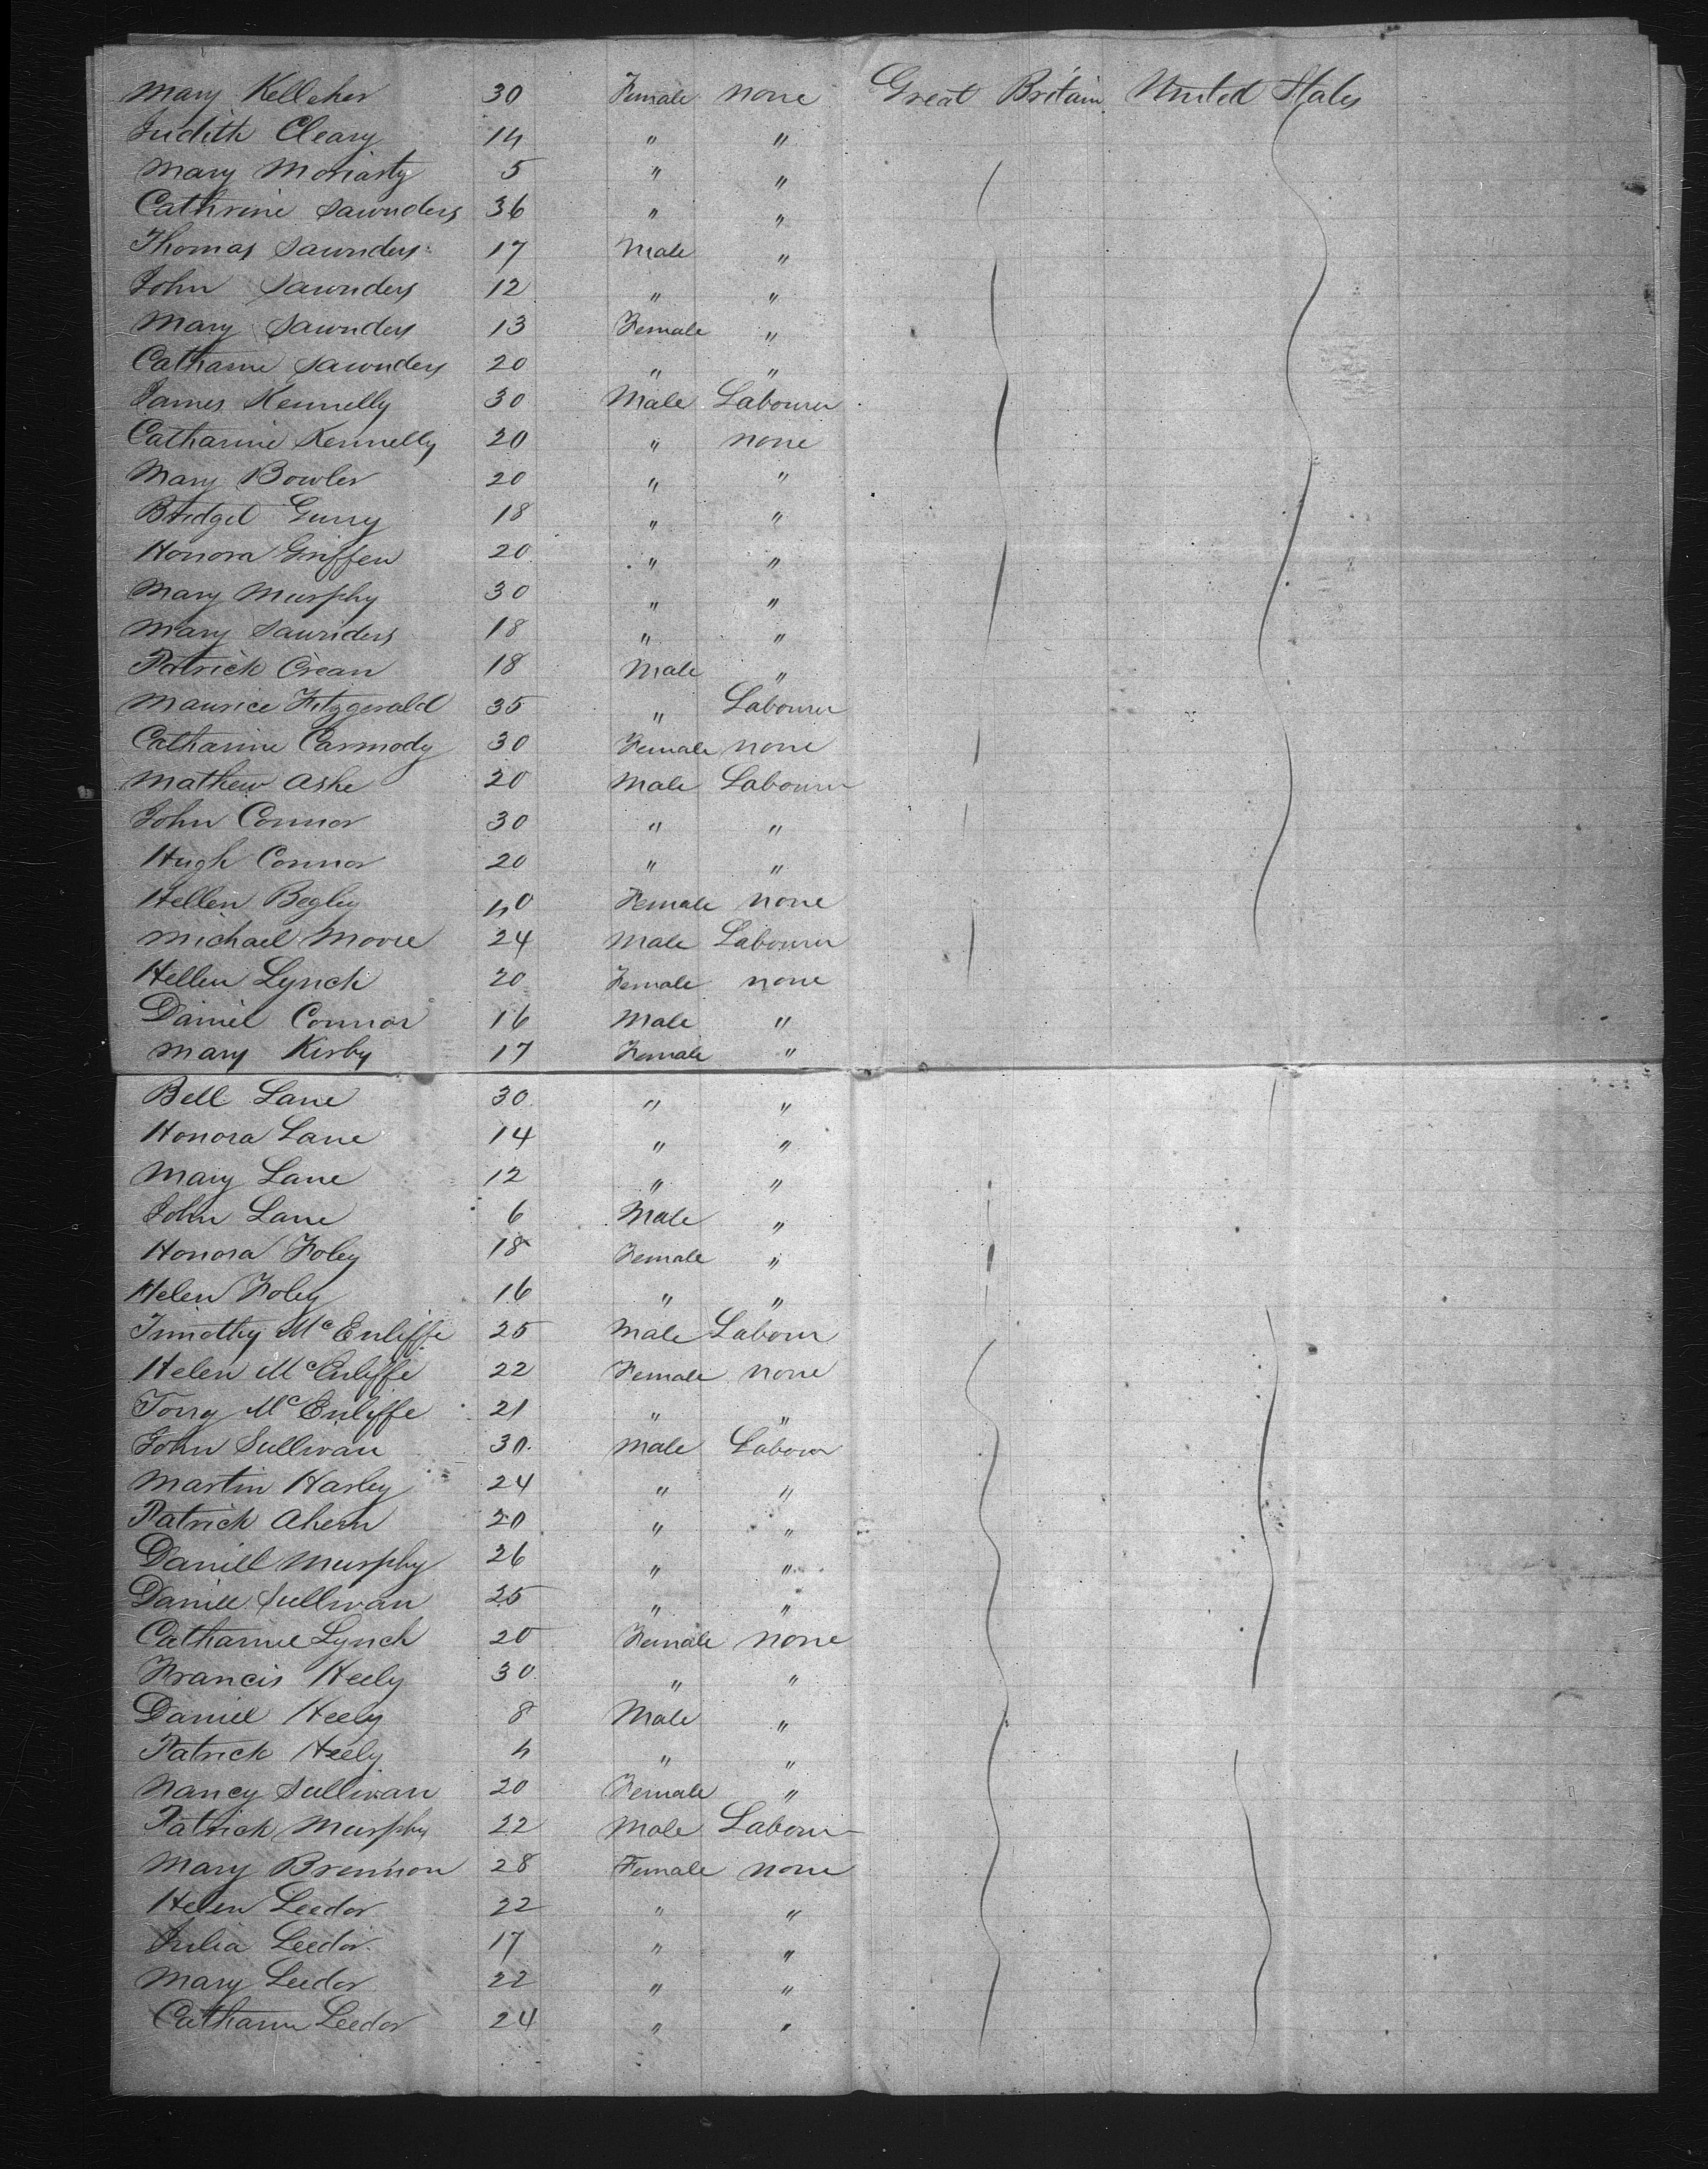 Mary Kelleher 30 Female none Great Britain United States
Judith Cleary 14 " "
Mary Moriarty 5 " "
Cathrine Saunders 36 " "
Thomas Saunders 17 Male "
John Saunders 12 " "
Mary Saunders 13 Female "
Catharine Saunders 20 " "
James Kennelly 30 Male Labourer
Catharine Kennelly 20 " none
Mary Bowler 20 " "
Bridget 18 " "
Honora Griffen 20 " "
Mary Murphy 30 " "
Mary Saunders 18 " "
Patrick Crean 18 Male "
Maurice Fitzgerald 35 " Labourer
Catharine Carmody 30 Female none
Mathew Ashe 20 Male Labourer
John Connor 30 " "
Hugh Connor 20 " "
Hellen Begley 40 Female none
Michael Moore 24 Male Labourer
Hellen Lynch 20 Female none
Daniel Connor 16 Male "
Mary Kirby 17 Female "
Bell Lane 30 " "
Honora Lane 14 " "
Mary Lane 12 " "
John Lane 6 Male "
Honora Foley 18 Female "
Helen Foley 16 " "
Timothy McEnliffe 25 Male Labour
Helen McEnliffe 22 Female none
McEnliffe 21 " "
John Sullivan 30 Male Labour
Martin Harley 24 " "
Patrick Ahern 20 " "
Daniell Murphy 26 " "
Daniell Sullivan 25 " "
Catharine Lynch 20 Female none
Francis Heely 30 " "
Daniel Heely 8 Male "
Patrick Heely 4 " "
Nancy Sullivan 20 Female "
Patrick Murphy 22 Male Labour
Mary Brennon 28 Female none
Helen Leedor 22 " "
Julia Leedor 17 " "
Mary Leedor 22 " "
Catharine Leedor 24 " "